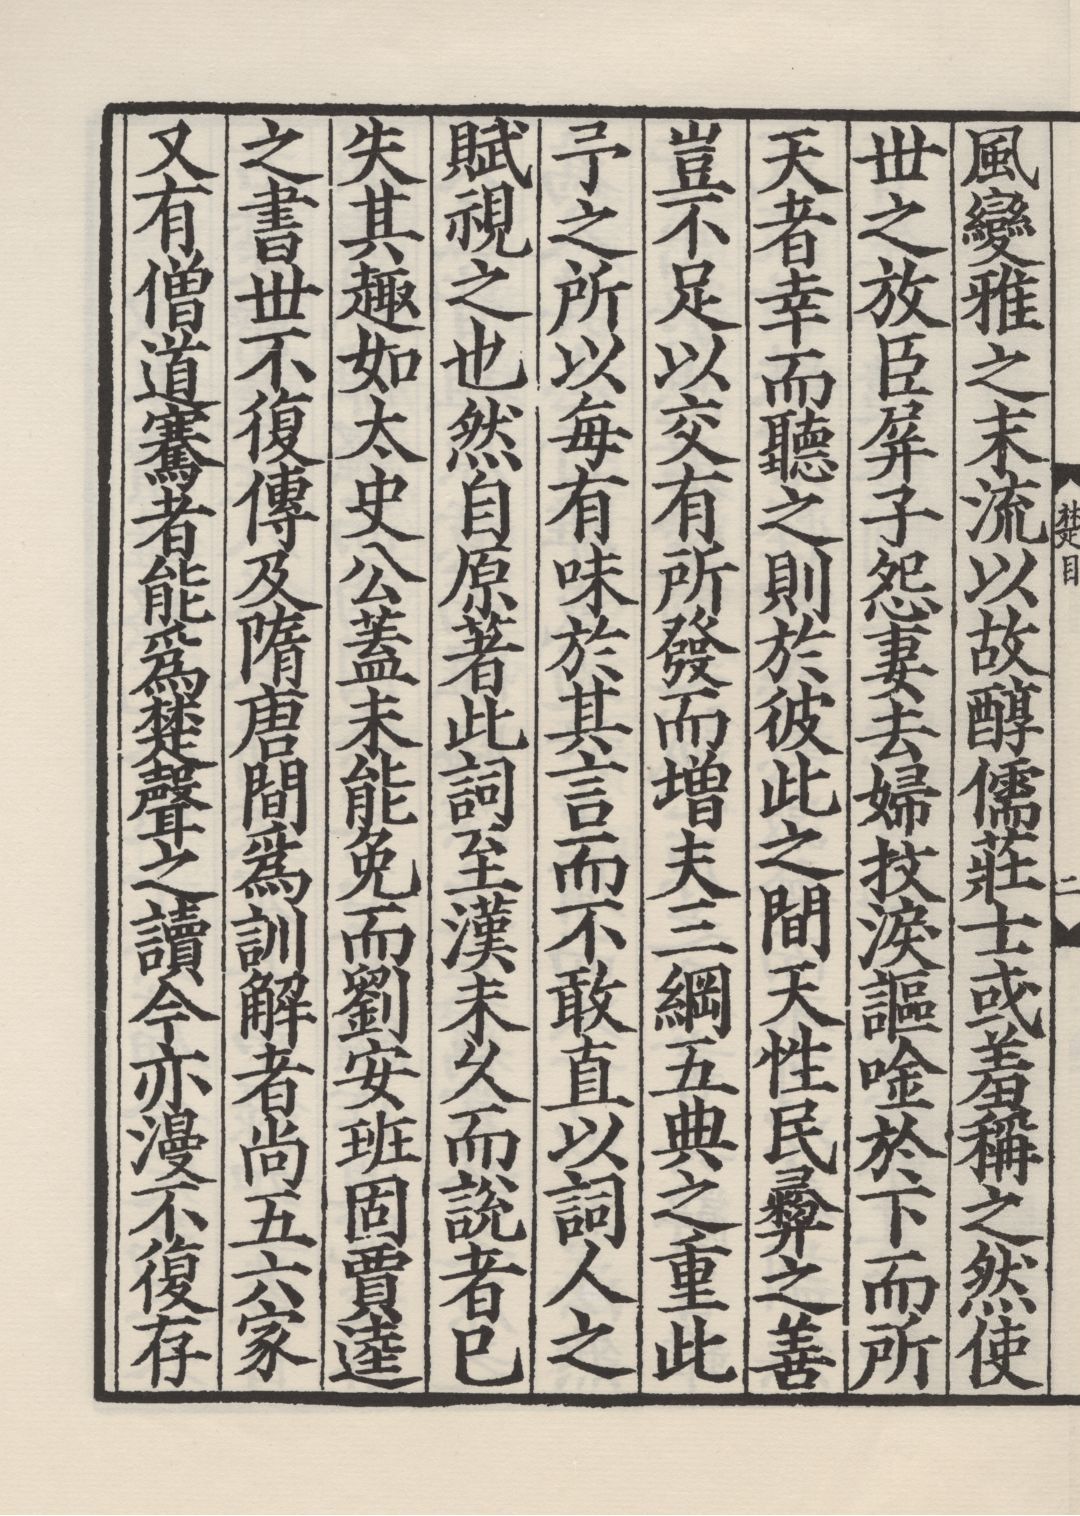 楚目
二
風變雅之末流以故醇儒莊士或羞稱之然使
丗之放臣屏子怨妻去婦抆淚謳唫於下而所
天者幸而聽之則於彼此之間天性民彞之善
豈不足以交有所發而增夫三綱五典之重此
予之所以每有味於其言而不敢直以詞人之
賦視之也然自原著此詞至漢未久而說者已
失其趣如太史公蓋未能免而劉安班固賈逵
之書丗不復傳及隋唐間爲訓解者尚五六家
又有僧道騫者能爲楚聲之讀今亦漫不復存